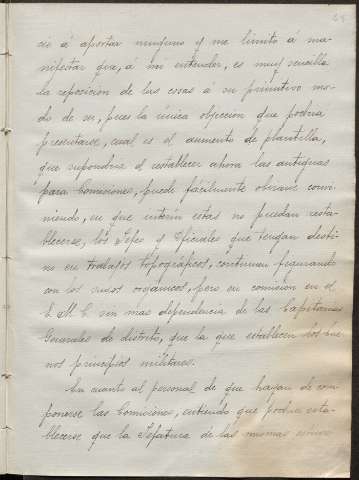 sis á aportar ninguno y me limito á ma-
nifestar que, á mi entender, es muy sencilla
la reposición de las cosas á su primitivo mo-
do de ser, pues la única objeción que podria
presentarse, cual es el aumento de plantilla,
que supondria el restablecer ahora las antiguas
para Comisiones, puede fácilmente obviarse convi-
niendo, en que interin estas no puedan resta-
blecerse, los Jefes y Oficiales que tengan desti-
no en trabajos topográficos, continuen figurando
con los suyos orgánicos, pero en comisión en el
E. M. C. sin mas dependencia de las Capitanias
Generales de distrito, que la que establecen los bue-
nos principios militares.
En cuanto al personal de que hayan de com-
ponerse las Comisiones, entiendo que podria esta-
blecerse que la Jefatura de las mismas estuvie